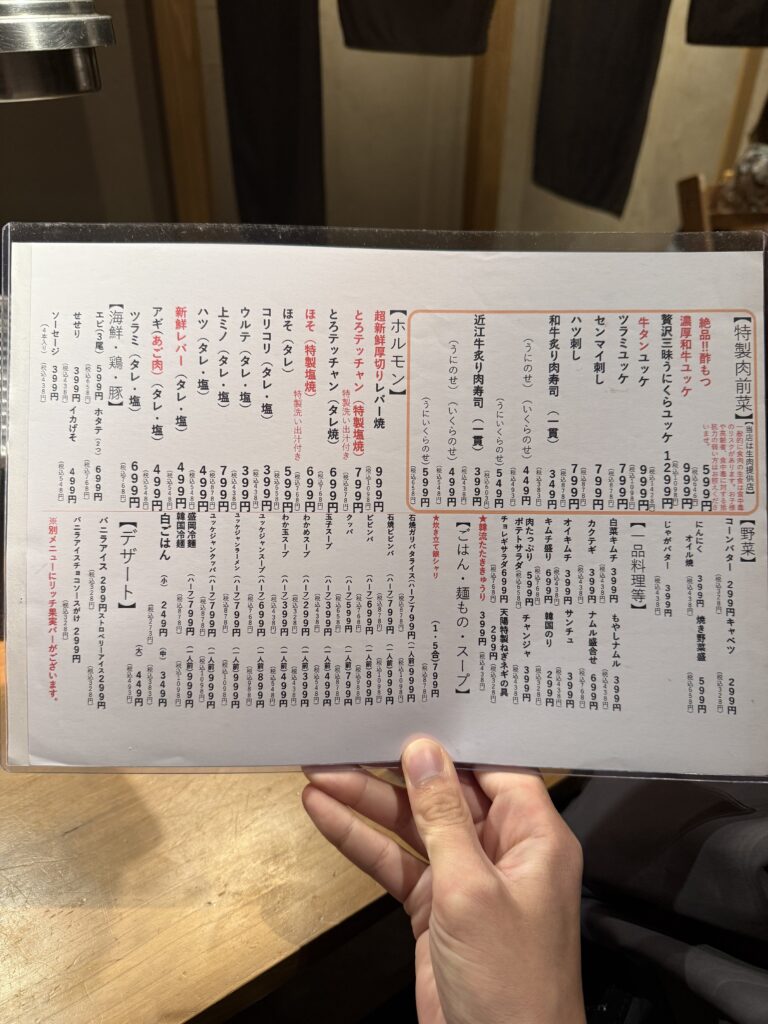 【特製肉前菜】
【当店は生肉提供店】
一般的に食肉の生食は食中毒
のリスクがあります。お子様
や高齢者、食中毒に対する抵
抗力の弱い方はお控えくださ
います。
絶品!!酢もつ 599円
濃厚和牛ユッケ 999円
(税込1098円)
贅沢三昧うにくらユッケ 1299円
牛タンユッケ 999円
ツラミユッケ 799円
センマイ刺し 799円
ハツ刺し 799円
和牛炙り肉寿司 (一貫) 349円
(いくらのせ) 449円
(うにのせ)
(うにいくらのせ) 549円
近江牛炙り肉寿司 (一貫)
(いくらのせ) 499円
(うにのせ)
(うにいくらのせ) 599円
【ホルモン】
超新鮮厚切りレバー焼 999円
とろテッチャン (特製塩焼) 799円
特製洗い出汁付き
とろテッチャン (タレ焼) 699円
ほそ (特製塩焼) 699円
特製洗い出汁付き
ほそ (タレ) 599円
コリコリ (タレ・塩)
ウルテ (タレ・塩) 399円
上ミノ (タレ・塩)
ハツ (タレ・塩) 499円
新鮮レバー (タレ・塩) 499円
アギ(あご肉) (タレ・塩) 499円
ツラミ (タレ・塩) 699円
【海鮮・鶏・豚】
エビ(3尾) 599円 ホタテ(2コ) 699円
せせり 399円 イカげそ 499円
ソーセージ 399円
(4本入り)
【野菜】
コーンバター 299円 キャベツ 299円
にんにく
オイル焼 399円 焼き野菜盛 599円
じゃがバター 399円
【一品料理等】
白菜キムチ 399円 もやしナムル 399円
カクテギ 399円 ナムル盛合せ 699円
オイキムチ 399円 サンチュ 399円
キムチ盛り 699円 韓国のり 299円
肉たっぷり
ポテトサラダ 599円 チャンジャ 399円
チョレギサラダ 699円 天陽特製ねぎネギの具 299円
★韓流たたききゅうり 399円
【ごはん・麺もの・スープ】
★炊き立て銀シャリ (1・5合) 799円
石焼ガリバタライス (ハーフ) 799円 (一人前) 999円
石焼ビビンバ (ハーフ) 799円 (一人前) 999円
ビビンバ (ハーフ) 699円 (一人前) 899円
クッパ (ハーフ) 599円 (一人前) 799円
玉子スープ (ハーフ) 399円 (一人前) 499円
わかめスープ (ハーフ) 299円 (一人前) 399円
わか玉スープ (ハーフ) 399円 (一人前) 499円
ユッケジャンスープ (ハーフ) 699円 (一人前) 899円
ユッケジャンラーメン (ハーフ) 799円 (一人前) 999円
ユッケジャンクッパ (ハーフ) 799円 (一人前) 999円
盛岡冷麺
韓国冷麺 (ハーフ) 799円 (一人前) 999円
白ごはん (小) 249円 (中) 349円 (大) 449円
【デザート】
バニラアイス 299円 ストロベリーアイス 299円
バニラアイスチョコソースがけ 299円
※別メニューにリッチ果実バーがございます。